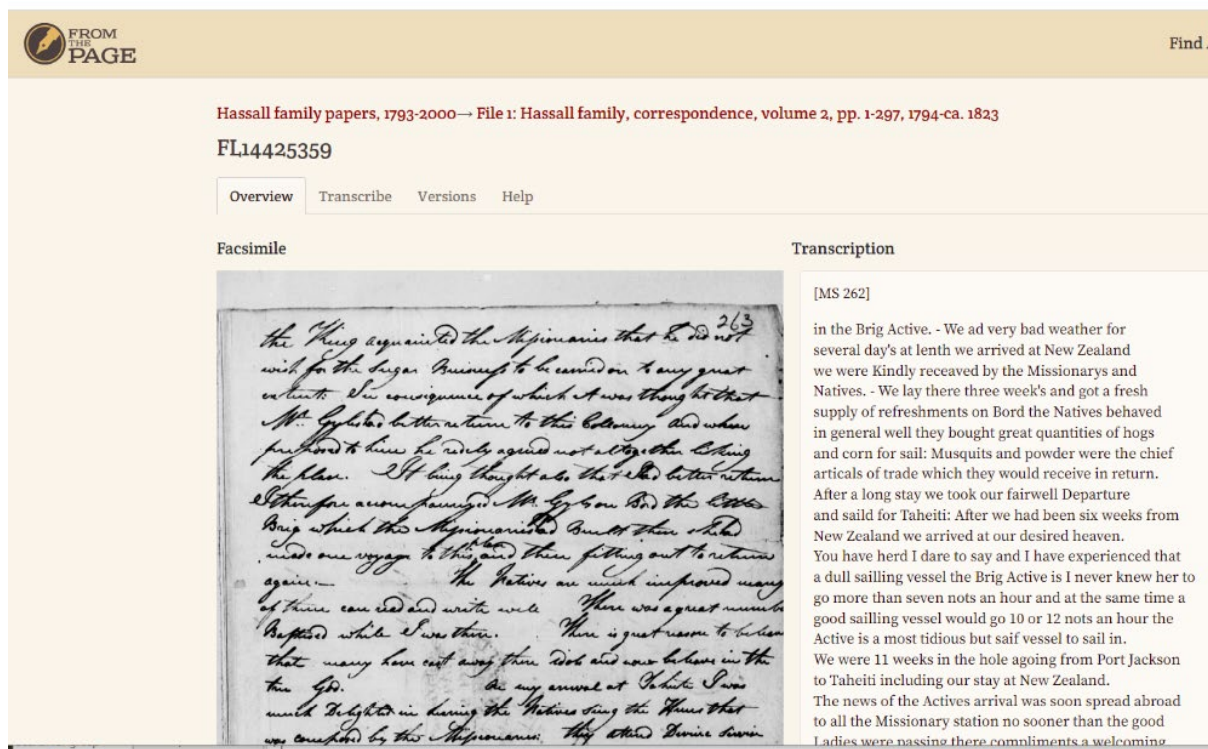 FROM
THE
PAGE
Find
Hassall family papers, 1793-2000→ File 1: Hassall family, correspondence, volume 2, pp. 1-297, 1794-ca. 1823
FL14425359
Overview Transcribe Versions Help
Facsimile
263
the King acquainted the Missionaries that he did not
wish for the Sugar Business to be carried on to any great
extent: In consequence of which it was thought that
Mr. Gyles had better return to this Colloney and when
proposed to him he redely agreed not altogether liking
the place. It being thought also that I had better return
I therefore accompanyed Mr. Gyles on Bord the little
Brig which the Missionaries had Built then
made one voyage to this place and then fitting out to return
again. The Natives are much improved many
of them can read and write well There was a great numbe
Baptised while I was there. There is great reason to believe
that many have cast away there idols and now believe in the
true God. On my arrival at Tahiti I was
much Delighted in hearing the Natives sing the Hims that
was composed by the Missionaries. they attend Divine Servise
Transcription
[MS 262]
in the Brig Active. - We ad very bad weather for
several day's at lenth we arrived at New Zealand
we were Kindly receaved by the Missionarys and
Natives. - We lay there three week's and got a fresh
supply of refreshments on Bord the Natives behaved
in general well they bought great quantities of hogs
and corn for sail: Musquits and powder were the chief
articals of trade which they would receive in return.
After a long stay we took our fairwell Departure
and saild for Taheiti: After we had been six weeks from
New Zealand we arrived at our desired heaven.
You have herd I dare to say and I have experienced that
a dull sailling vessel the Brig Active is I never knew her to
go more than seven nots an hour and at the same time a
good sailling vessel would go 10 or 12 nots an hour the
Active is a most tidious but saif vessel to sail in.
We were 11 weeks in the hole agoing from Port Jackson
to Taheiti including our stay at New Zealand.
The news of the Actives arrival was soon spread abroad
to all the Missionary station no sooner than the good
Ladies were passing there compliments a welcoming